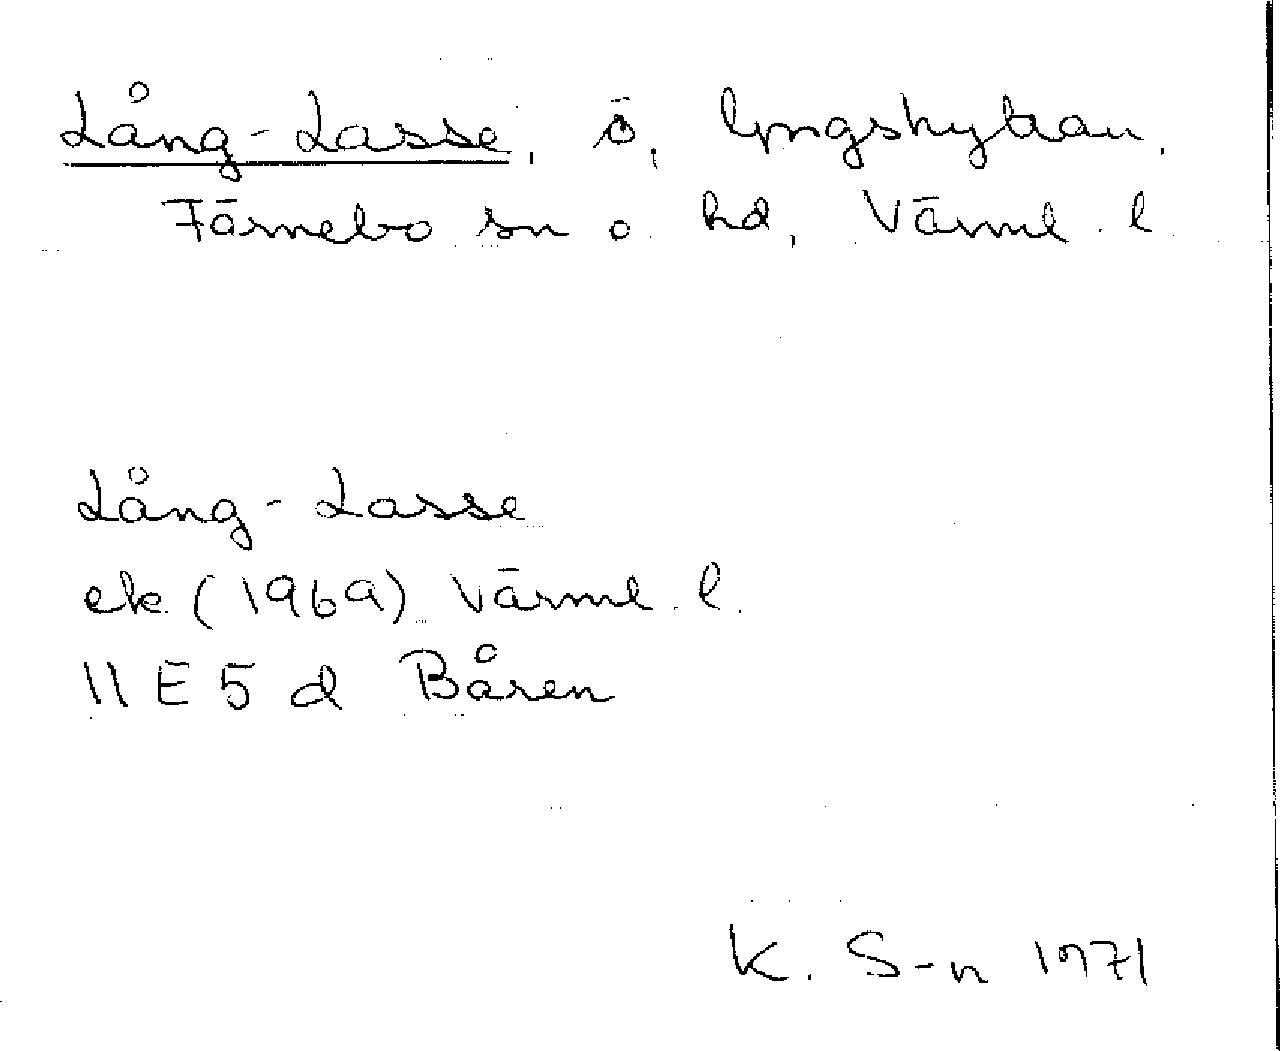 Lång-Lasse, ö, lyngshyttan,
Färnebo sn o. hd, Värml. l.
Lång-Lasse
ek (1969) Värml. l.
11 E 5 d Båren
K. S-n 1971